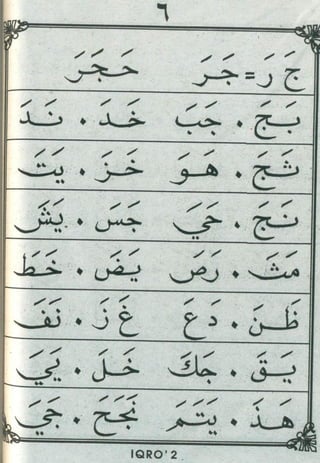 ٦
جَ رَ = جَرَ حَجَرَ
بَجَ . جَبَ خَدَ . نَدَ
ثَجَ . هَوَ خَزَ . يَتَ
نَجَ . حَيَ جَسَ . يَشَ
مَثَ . رَصَ يَضَ . خَطَ
ظَنَ . دَعَ غَزَ . نَفَ
يَقَ . جَكَ خَلَ . يَيَ
هَذَ . يَتَمَ نَجَحَ . جَيَ
IQRO' 2